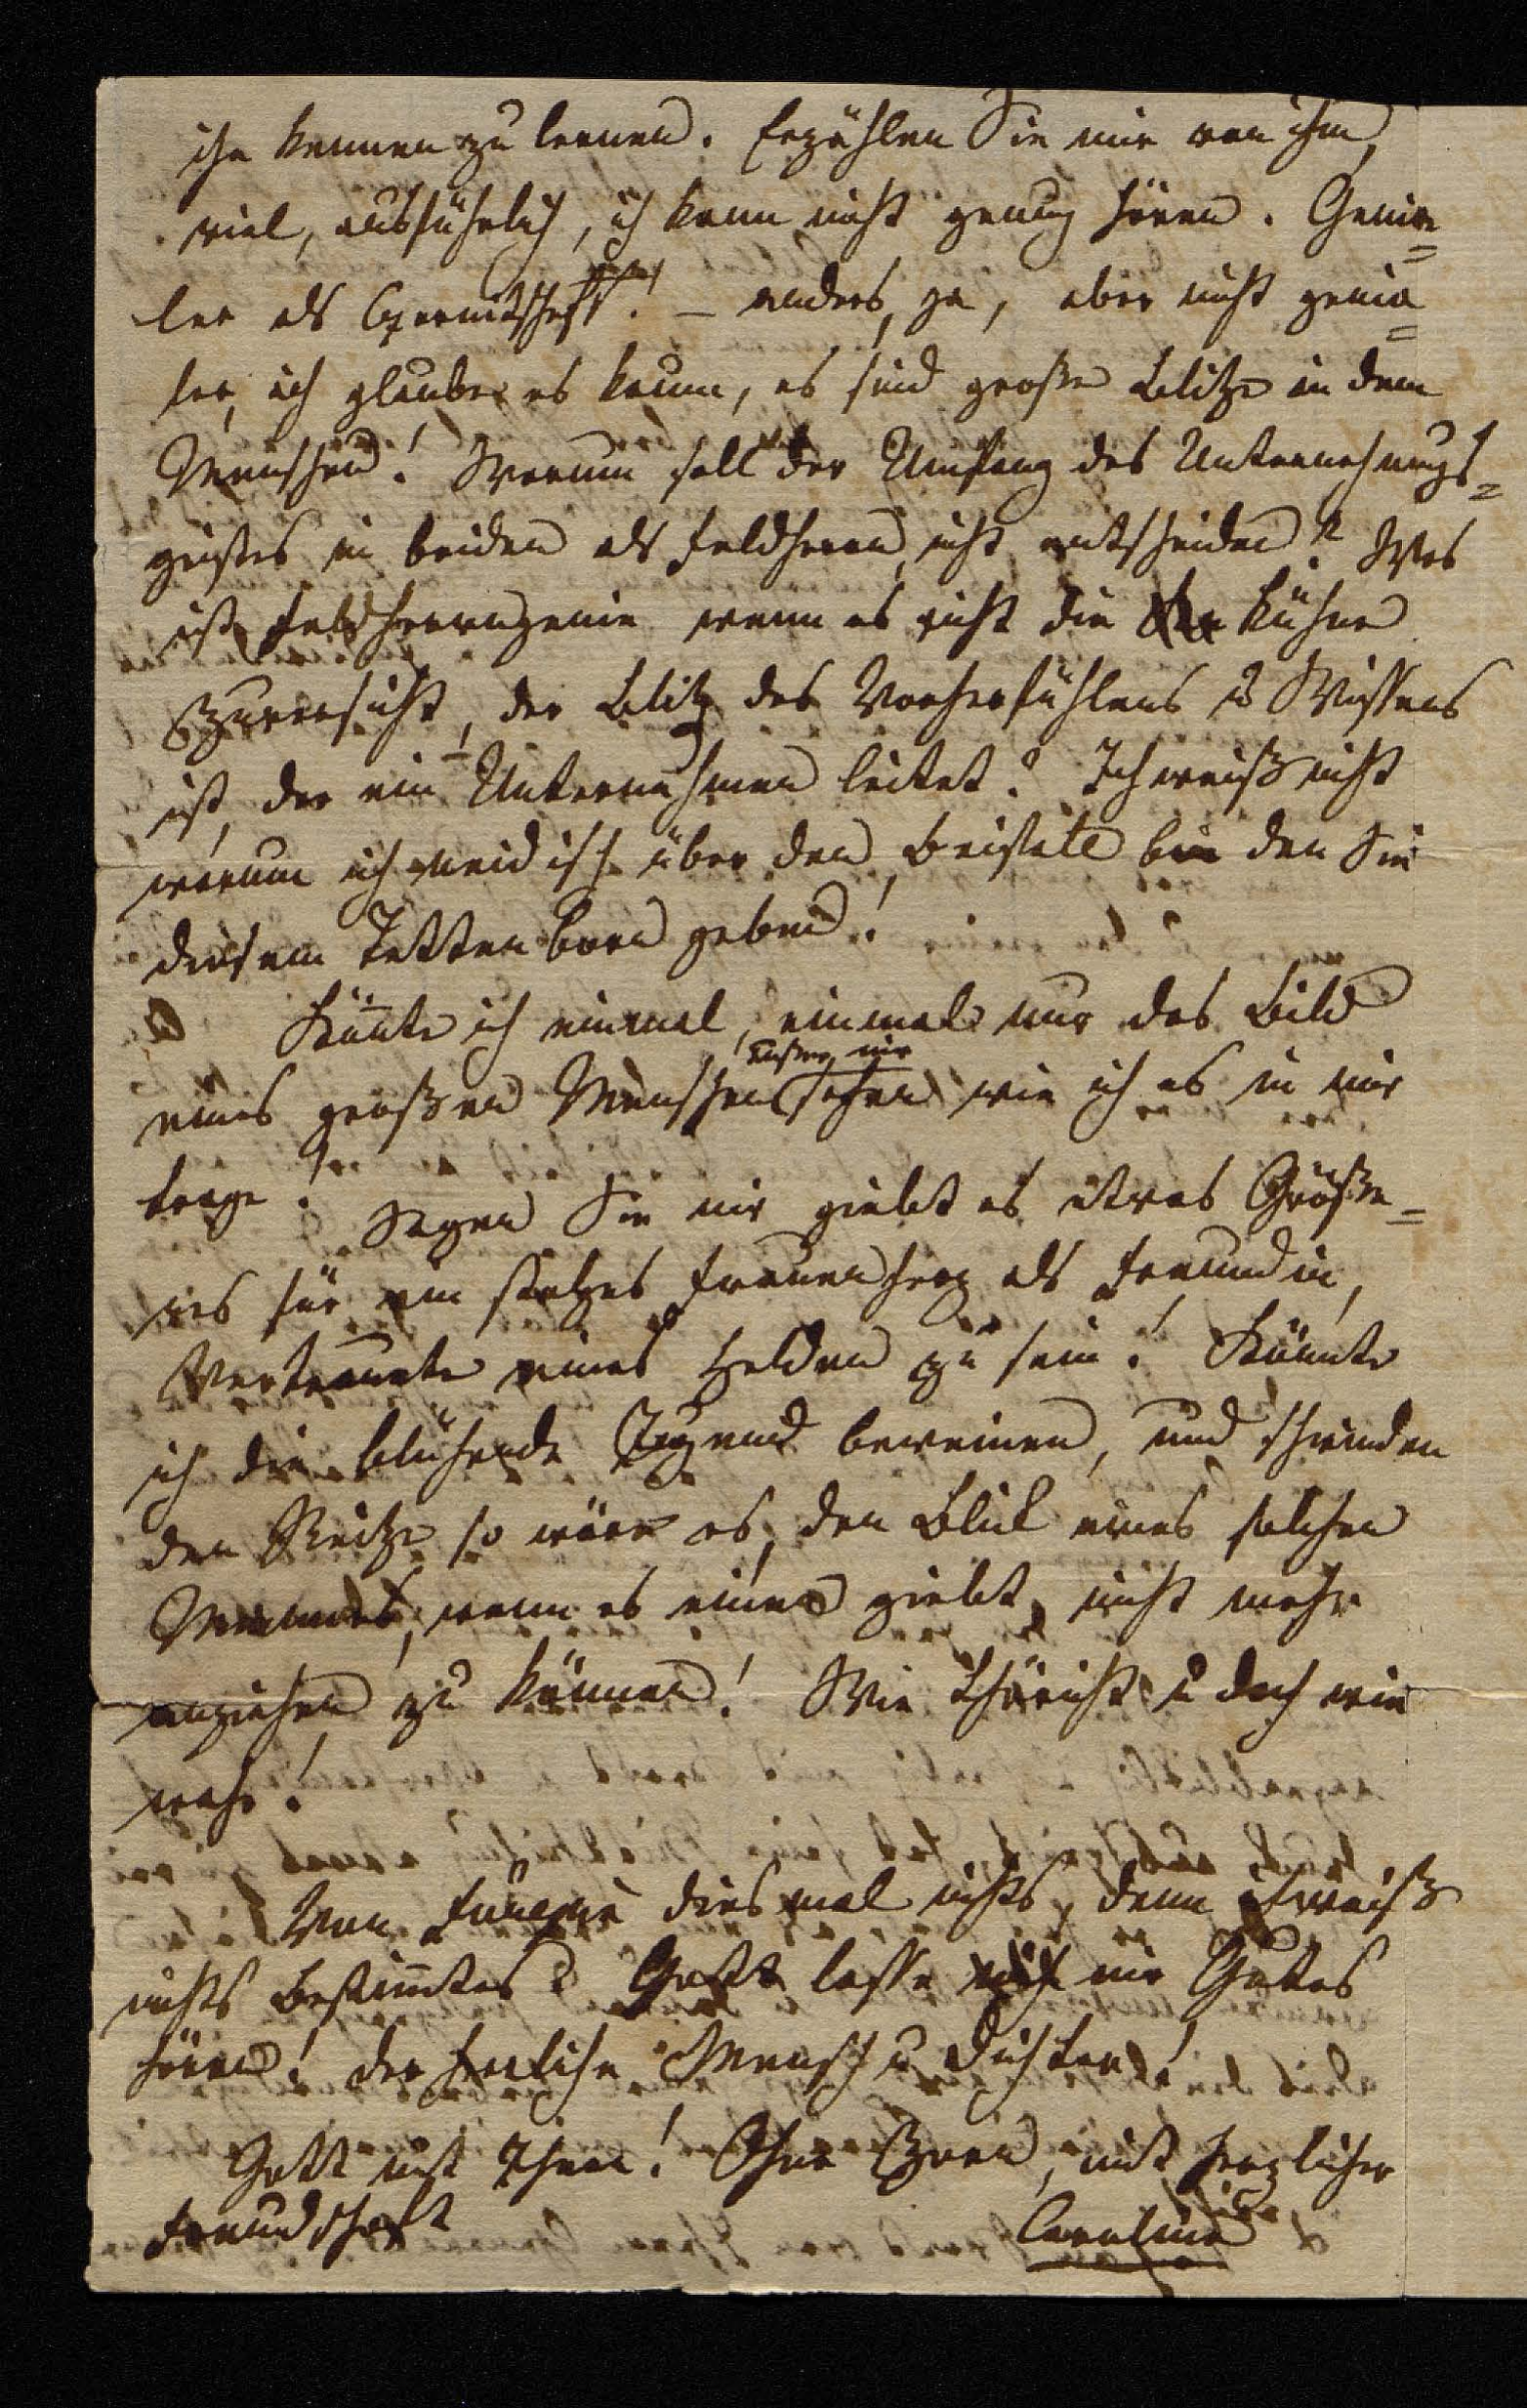 ihn kennen zu lernen. Erzählen Sie mir von ihm,
viel, ausführlich, ich kann nicht genug hören. Genia=
ler als Czernitscheff! – anders, ja, aber nicht genia=
ler, ich glaube es kaum, es sind große Blitze in dem
Menschen! Warum soll der Umfang des Unternehmungs=
geistes in beiden als Feldherrn nicht entscheiden? Was
ist Feldherrngenie wenn es nicht die kühne
Zuversicht, der Blitz des Vorherfühlens u Wissens
ist, der ein Unternehmen leitet? Ich weiß nicht
warum ich neidisch über den Beifall bin den Sie
diesem Tettenborn geben!
Könnte ich einmal, einmal nur das Bild
außer mir
eines großen Menschen sehen wie ich es in mir
trage! Sagen Sie mir giebt es etwas Größe=
res für ein stolzes Frauenherz als Freundin,
Vertraute eines Helden zu sein! Könnte
ich die blühende Jugend beweinen, und schwinden
den Reitz so wäre es, den Blick eines solchen
Mannes, wenn es einen giebt, nicht mehr
anziehen zu können! Wie thöricht u doch wie
wahr!
Von Fouqué diesmal nichts, denn ich weiß
nichts Bestimmtes. Gott lasse mir Gutes
hören! der herrliche Mensch u Dichter!
Gott mit Ihnen! Ohne Zorn, mit herzlicher
Freundschaft
Caroline